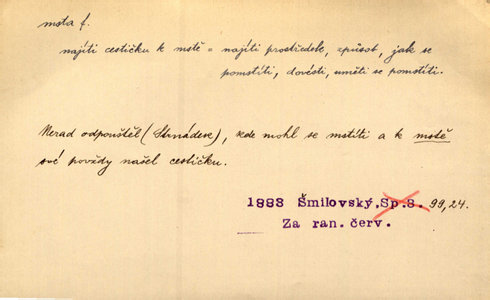 msta f.
najíti cestičku k mstě = najíti prostředek, způsob, jak se
pomstíti, dovésti, uměti se pomstíti.
Nerad odpouštěl (Strnádek), kde mohl se mstíti a k mstě
své povždy našel cestičku.
1883 Šmilovský, Sp. 3. 99, 24.
Za ran. červ.